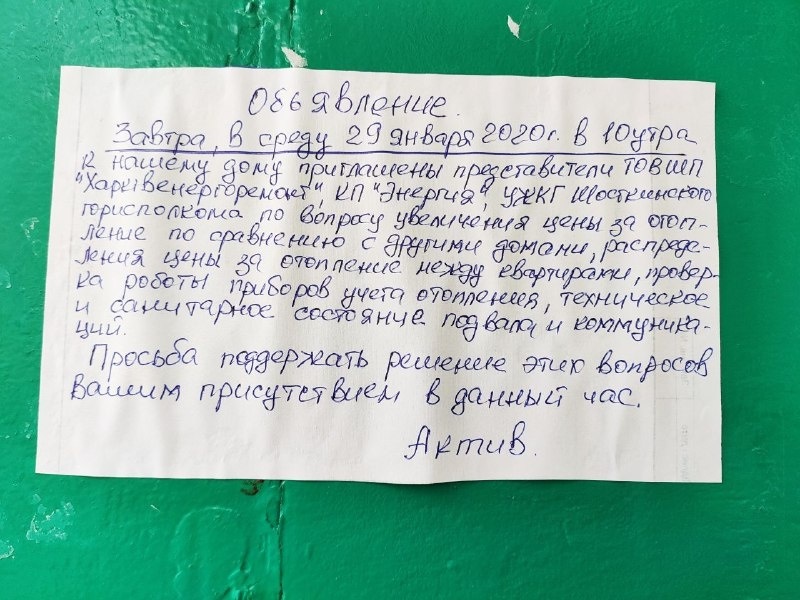 Обьявление.
Завтра, в среду 29 января 2020г. в 10 утра
к нашему дому приглашены представители ТОВ ШП
"Харківенергоремонт", КП "Энергия", УЖКГ Шосткинского
горисполкома по вопросу увеличения цены за отоп-
ление по сравнению с другими домами, распреде-
ления цены за отопление между квартирами, провер-
ка роботы приборов учета отопления, техническое
и санитарное состояние подвала и коммуника-
ций.
Просьба поддержать решение этих вопросов
Вашим присутствием в данный час.
Актив.